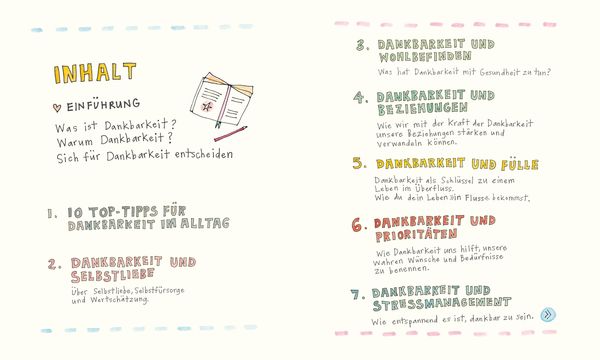 INHALT
EINFÜHRUNG
Was ist Dankbarkeit?
Warum Dankbarkeit?
Sich für Dankbarkeit entscheiden
1. 10 TOP-TIPPS FÜR
DANKBARKEIT IM ALLTAG
2. DANKBARKEIT UND
SELBSTLIEBE
Über Selbstliebe, Selbstfürsorge
und Wertschätzung.
3. DANKBARKEIT UND
WOHLBEFINDEN
Was hat Dankbarkeit mit Gesundheit zu tun?
4. DANKBARKEIT UND
BEZIEHUNGEN
Wie wir mit der Kraft der Dankbarkeit
unsere Beziehungen stärken und
verwandeln können.
5. DANKBARKEIT UND FÜLLE
Dankbarkeit als Schlüssel zu einem
Leben im Überfluss.
Wie du dein Leben in Fluss bekommst.
6. DANKBARKEIT UND
PRIORITÄTEN
Wie Dankbarkeit uns hilft, unsere
wahren Wünsche und Bedürfnisse
zu benennen.
7. DANKBARKEIT UND
STRESSMANAGEMENT
Wie entspannend es ist, dankbar zu sein.